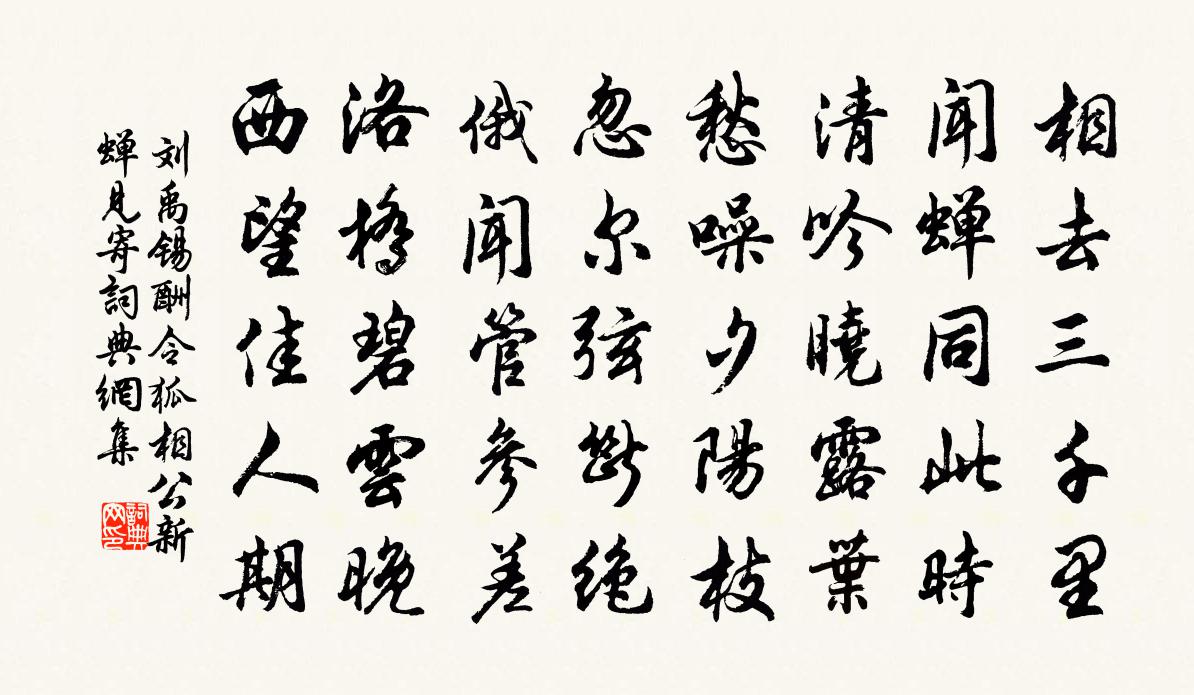 相去三千里
闻蝉同此時
清吟曉露葉
愁噪夕陽枝
忽尔弦断绝
俄闻管參差
洛橋碧雲晚
西望佳人期
刘禹锡酬令狐相公新
蝉見寄詞典網集
詞典
网印